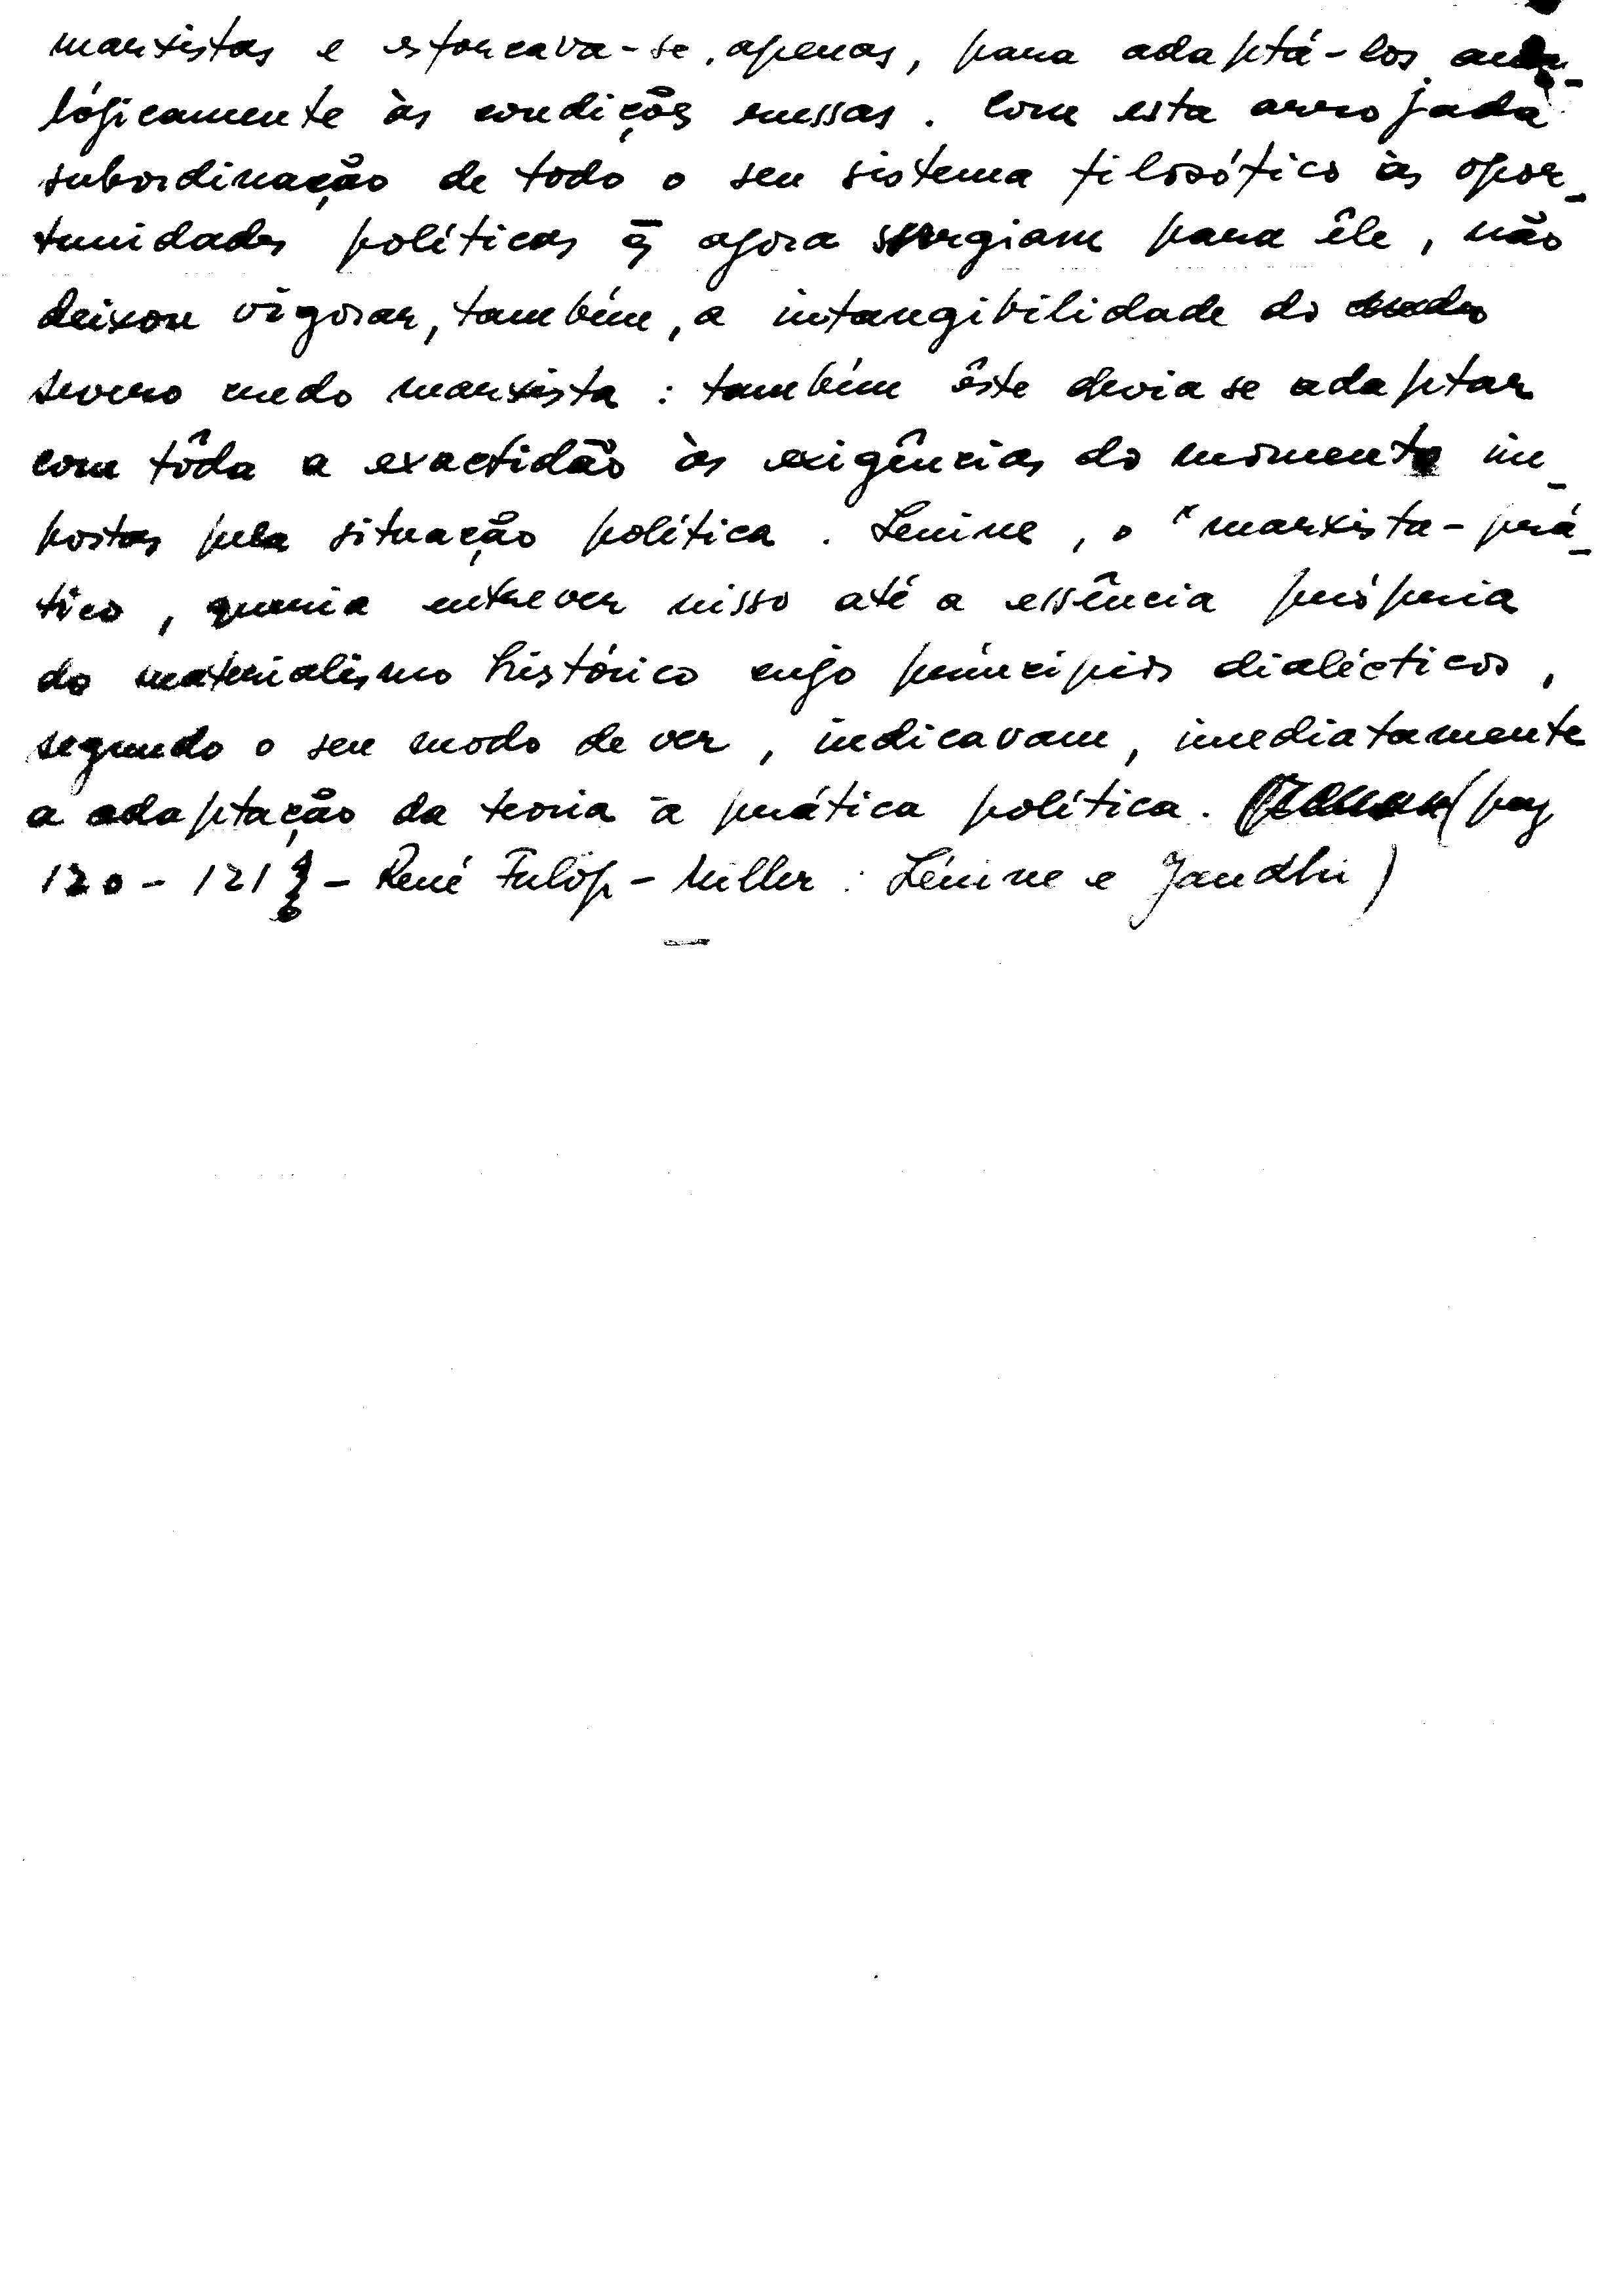 marxistas e esforcava-se, apenas, para adaptá-los ana-
lógicamente às condições russas. Com esta arrojada
subordinação de todo o seu sistema filosófico às opor-
tunidades políticas q̃ agora surgiam para êle, não
deixou vigorar, também, a intangibilidade do
severo credo marxista: também êste devia se adaptar
com tôda a exactidão às exigências do momento im-
postas pela situação política. Lenine, o "marxista-prá-
tico, queria entrever nisso até a essência própria
do materialismo histórico cujo princípios dialécticos,
segundo o seu modo de ver, indicavam, imediatamente
a adaptação da teoria à prática política. (pag
120-121 - René Fulöp-Miller: Lénine e Gandhi)